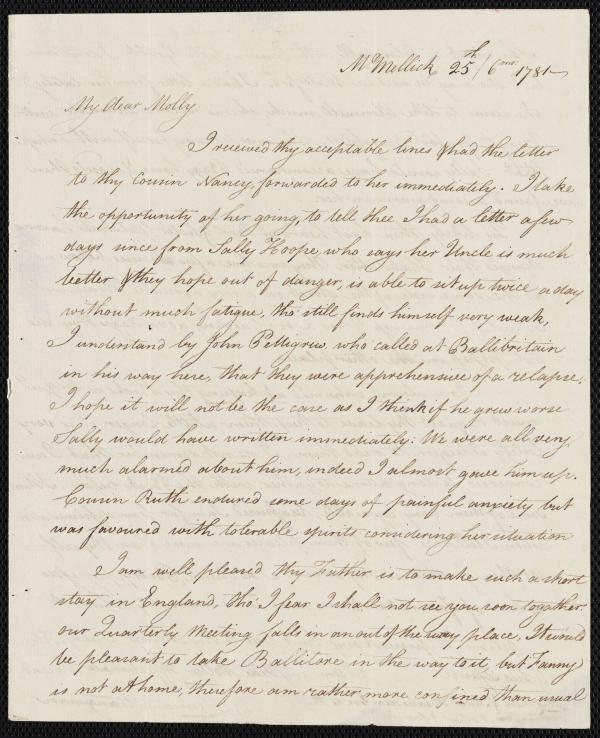 Mt Mellick 25th/6mo: 1781
My dear Molly
I received thy acceptable lines & had the letter
to thy Cousin Nancy, forwarded to her immediately. I take
the opportunity of her going, to tell thee I had a letter a few
days since from Sally Hoope, who says her Uncle is much
better & they hope out of danger, is able to sit up twice a day
without much fatigue, tho' still finds himself very weak,
I understand by John Pettigrew, who called at Ballibritain
in his way here, that they were apprehensive of a relapse,
I hope it will not be the case as I think if he grew worse
Sally would have written immediately: We were all very
much alarmed about him, indeed I almost gave him up.
Cousin Ruth endured some days of painful anxiety but
was favoured with tolerable spirits considering her situation
I am well pleased thy Father is to make such a short
stay in England, tho' I fear I shall not see you soon together
our Quarterly Meeting falls in an out of the way place, It would
be pleasant to take Ballitore in the way to it, but Fanny
is not at home, therefore am rather more confined than usual